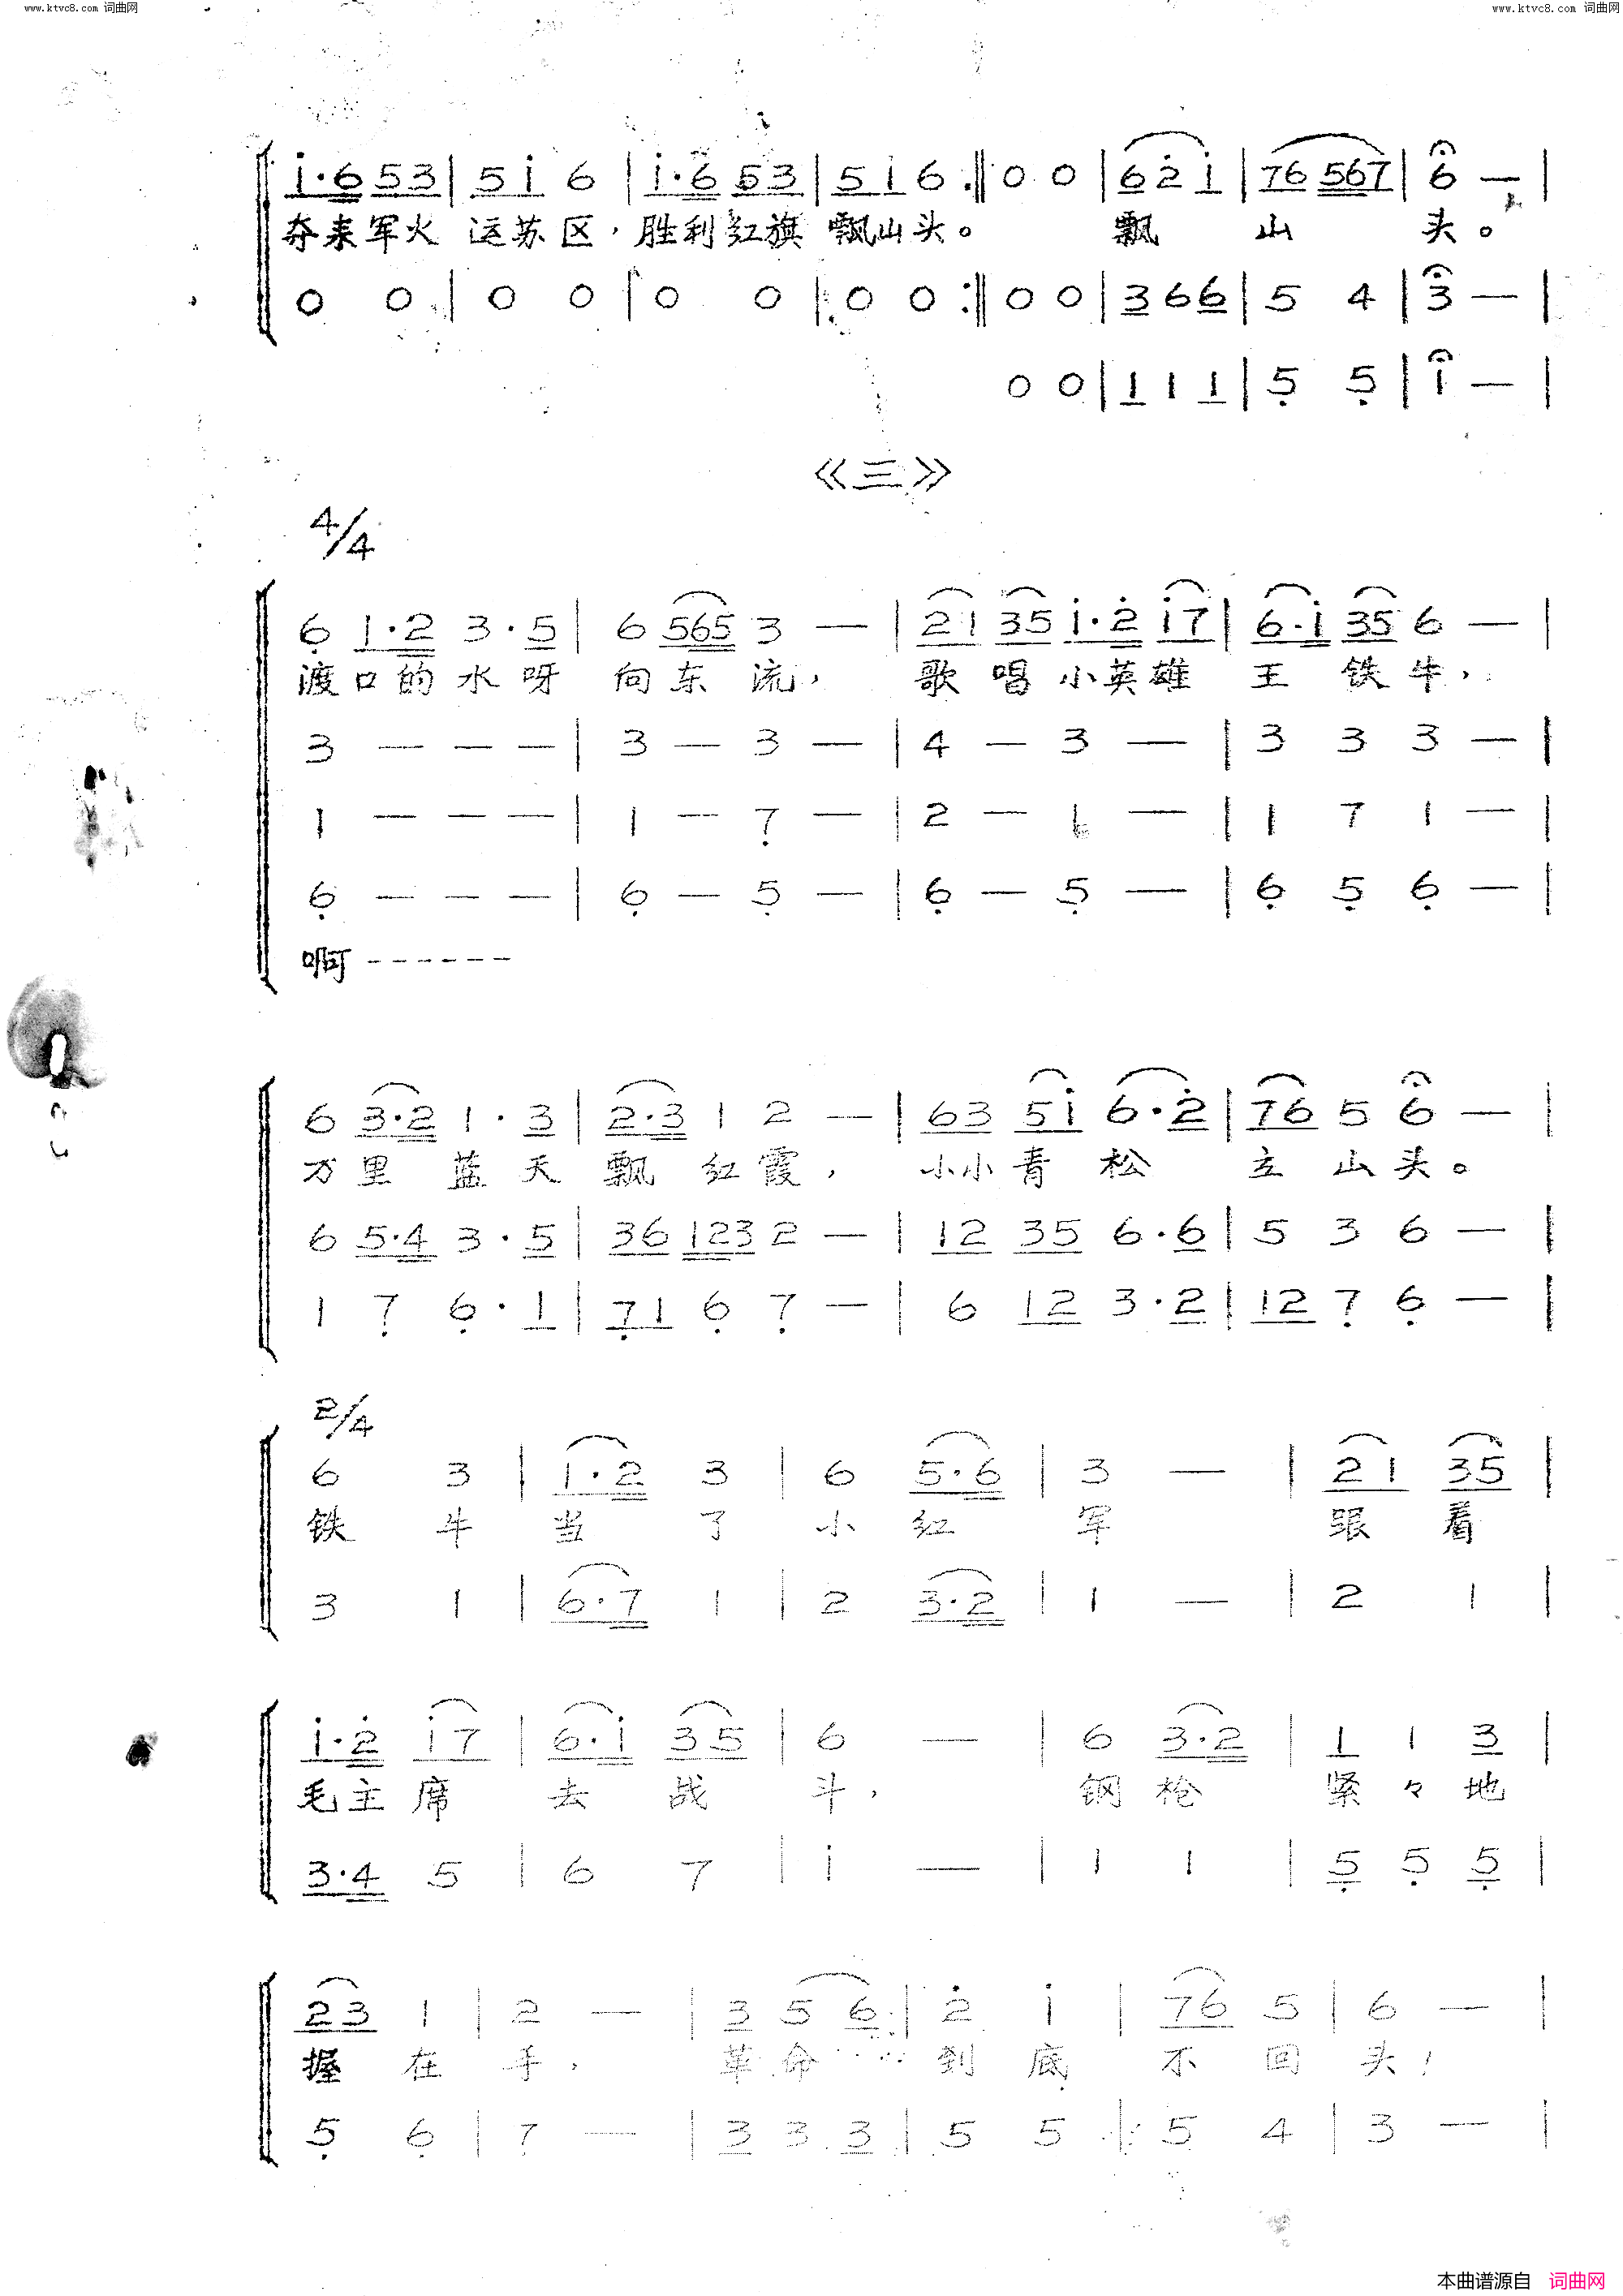 www.ktvc8.com 词曲网
www.ktvc8.com 词曲网
i·6 53 | 5i 6 | i·6 53 | 5i6 :‖ 0 0 | 6 2 i | 76 567 | 6 — |
夺来军火 运苏区，胜利红旗 飘山头。 飘 山 头。
0 0 | 0 0 | 0 0 | 0 0 :‖ 0 0 | 3 6 6 | 5 4 | 3 — |
0 0 | 1 1 1 | 5 5 | 1 — |
《三》
4/4
6 1·2 3·5 | 6 565 3 — | 21 35 i·2 i7 | 6·i 35 6 — |
渡口的水呀 向东流， 歌唱小英雄 王铁牛，
3 — — — | 3 — 3 — | 4 — 3 — | 3 3 3 — |
1 — — — | 1 — 7 — | 2 — 1 — | 1 7 1 — |
6 — — — | 6 — 5 — | 6 — 5 — | 6 5 6 — |
啊------
6 3·2 1·3 | 2·3 1 2 — | 63 5i 6·2 | 76 5 6 — |
万里蓝天 飘红霞， 小小青松 立山头。
6 5·4 3·5 | 36 123 2 — | 12 35 6·6 | 5 3 6 — |
1 7 6·1 | 71 6 7 — | 6 12 3·2 | 12 7 6 — |
2/4
6 3 | 1·2 3 | 6 5·6 | 3 — | 21 35 |
铁牛 当了 小红军 跟着
3 1 | 6·7 1 | 2 3·2 | 1 — | 2 1 |
i·2 i7 | 6·i 35 | 6 — | 6 3·2 | 1 1 3 |
毛主席 去战斗， 钢枪 紧々地
3·4 5 | 6 7 | i — | 1 1 | 5 5 5 |
23 1 | 2 — | 3 5 6 | 2 i | 76 5 | 6 — |
握在手， 革命 到底 不回头！
5 6 | 7 — | 3 3 3 | 5 5 | 5 4 | 3 — |
本曲谱源自 词曲网